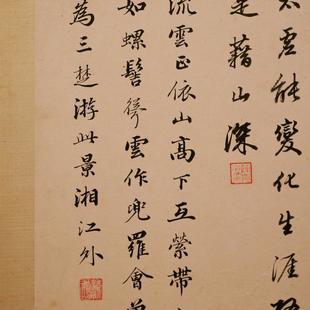 太虛能變化生涯
藉山深
流雲正依山高下互縈帶
如螺髻聳雲作兜羅會
為三楚游此景湘江外